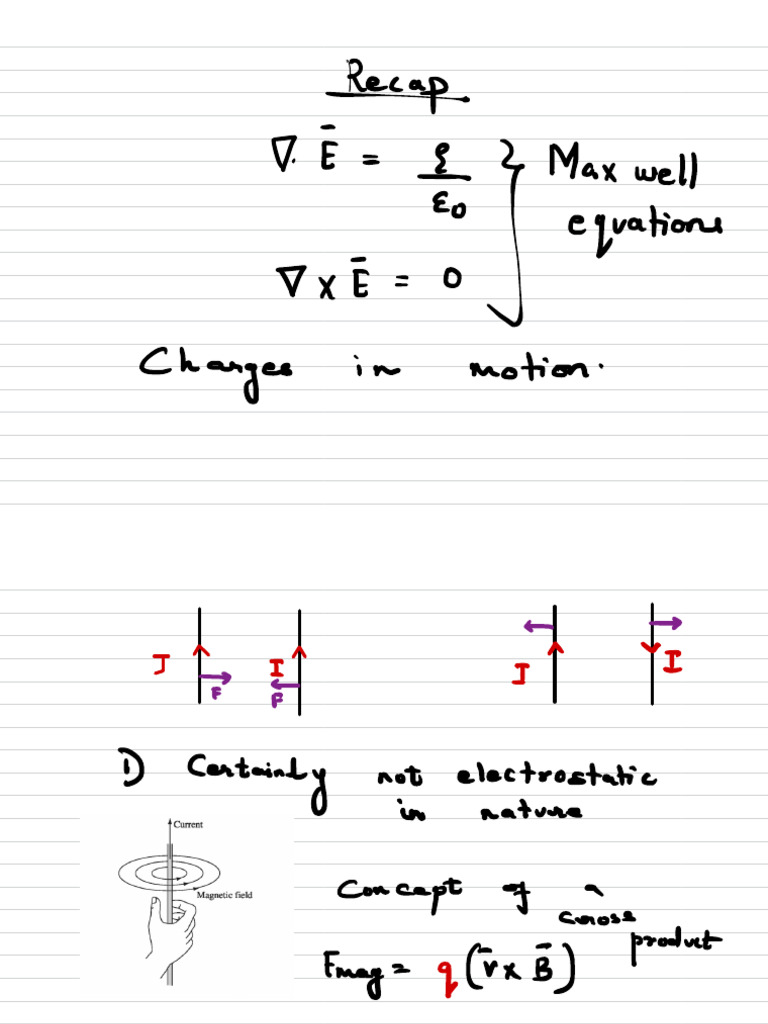 Recap
∇. Ē = ρ / ε₀ } Maxwell equations
∇ × Ē = 0
Charges in motion.
I F I F I I
1) Certainly not electrostatic
in nature
Current
Magnetic field
Concept of a
cross
product
Fmag = q (v̄ × B̄)